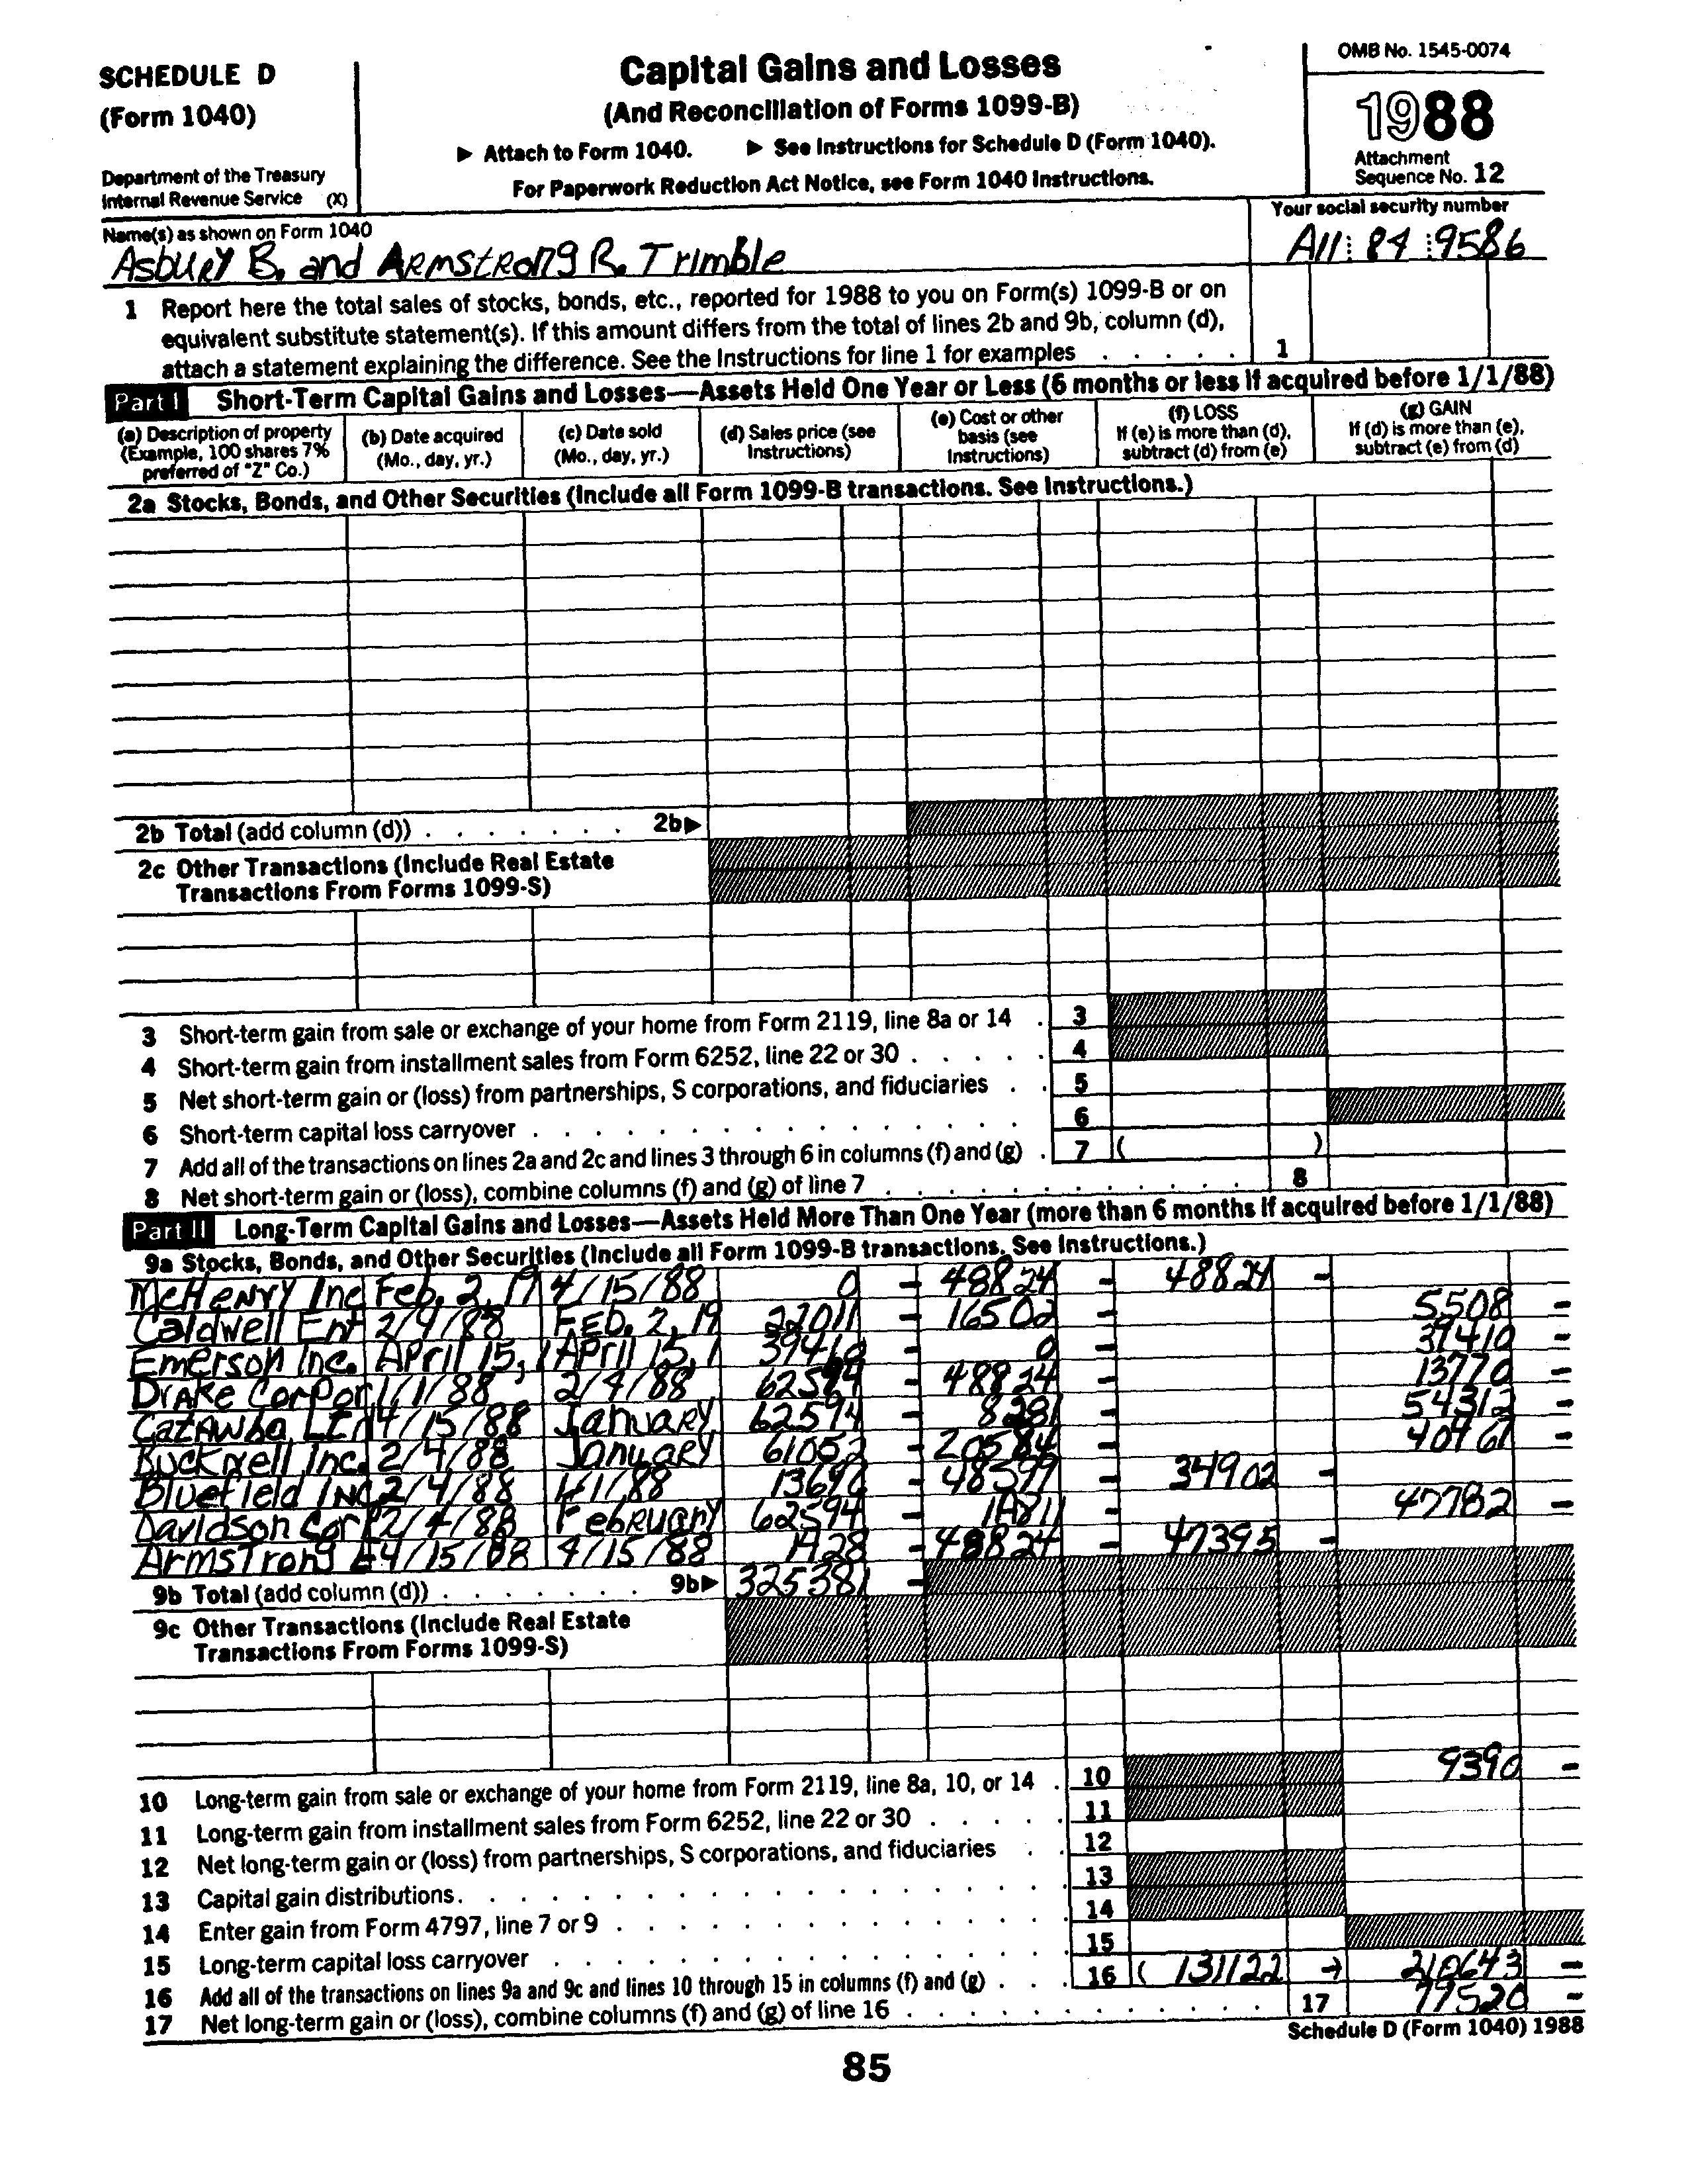 SCHEDULE D
(Form 1040)
Department of the Treasury
Internal Revenue Service (X)
Capital Gains and Losses
(And Reconciliation of Forms 1099-B)
▶ Attach to Form 1040. ▶ See Instructions for Schedule D (Form 1040).
For Paperwork Reduction Act Notice, see Form 1040 Instructions.
OMB No. 1545-0074
1988
Attachment
Sequence No. 12
Name(s) as shown on Form 1040
Asbury B. and Armstrong R. Trimble
Your social security number
A11 84 9586
1 Report here the total sales of stocks, bonds, etc., reported for 1988 to you on Form(s) 1099-B or on
equivalent substitute statement(s). If this amount differs from the total of lines 2b and 9b, column (d),
attach a statement explaining the difference. See the Instructions for line 1 for examples . . . . . 1
Part I Short-Term Capital Gains and Losses—Assets Held One Year or Less (6 months or less if acquired before 1/1/88)
(a) Description of property
(Example, 100 shares 7%
preferred of "Z" Co.)
(b) Date acquired
(Mo., day, yr.)
(c) Date sold
(Mo., day, yr.)
(d) Sales price (see
Instructions)
(e) Cost or other
basis (see
Instructions)
(f) LOSS
If (e) is more than (d),
subtract (d) from (e)
(g) GAIN
If (d) is more than (e),
subtract (e) from (d)
2a Stocks, Bonds, and Other Securities (Include all Form 1099-B transactions. See Instructions.)
2b Total (add column (d)) . . . . . . . 2b▶
2c Other Transactions (Include Real Estate
Transactions From Forms 1099-S)
3 Short-term gain from sale or exchange of your home from Form 2119, line 8a or 14 . 3
4 Short-term gain from installment sales from Form 6252, line 22 or 30 . . . . . 4
5 Net short-term gain or (loss) from partnerships, S corporations, and fiduciaries . . 5
6 Short-term capital loss carryover . . . . . . . . . . . . . . . . 6
7 Add all of the transactions on lines 2a and 2c and lines 3 through 6 in columns (f) and (g) . 7 ( )
8 Net short-term gain or (loss), combine columns (f) and (g) of line 7 . . . . . . . . . . . . 8
Part II Long-Term Capital Gains and Losses—Assets Held More Than One Year (more than 6 months if acquired before 1/1/88)
9a Stocks, Bonds, and Other Securities (Include all Form 1099-B transactions. See Instructions.)
McHenry Inc Feb. 2, 19 4/15/88 0 - 48824 - 48824 -
Caldwell Ent 2/4/88 Feb. 2, 19 22011 - 16502 - 5508 -
Emerson Inc. April 15, 1 April 15, 1 39410 - 0 - 39410 -
Drake Corpor 1/1/88 2/4/88 62594 - 48824 - 13770 -
Catawba, Ltd 4/15/88 January 62594 - 8281 - 54312 -
Bucknell Inc. 2/4/88 January 61052 - 20584 - 40467 -
Bluefield Inc 2/4/88 1/1/88 13696 - 48599 - 34902 -
Davidson Corp 2/4/88 February 62594 - 14811 - 47782 -
Armstrong 4/15/88 4/15/88 1428 - 48824 - 47395 -
9b Total (add column (d)) . . . . . . . 9b▶ 325381 -
9c Other Transactions (Include Real Estate
Transactions From Forms 1099-S)
10 Long-term gain from sale or exchange of your home from Form 2119, line 8a, 10, or 14 . 10 9390 -
11 Long-term gain from installment sales from Form 6252, line 22 or 30 . . . . . 11
12 Net long-term gain or (loss) from partnerships, S corporations, and fiduciaries . . 12
13 Capital gain distributions. . . . . . . . . . . . . . . . . . 13
14 Enter gain from Form 4797, line 7 or 9 . . . . . . . . . . . . . . 14
15 Long-term capital loss carryover . . . . . . . . . . . . . . . . 15
16 Add all of the transactions on lines 9a and 9c and lines 10 through 15 in columns (f) and (g) . . . 16 ( 131122 -) 210643 -
17 Net long-term gain or (loss), combine columns (f) and (g) of line 16 . . . . . . . . . . . . 17 79520 -
Schedule D (Form 1040) 1988
85